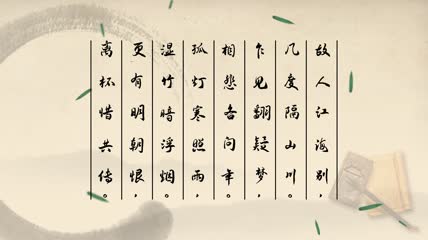 故人江海别，
几度隔山川。
乍见翻疑梦，
相悲各问年。
孤灯寒照雨，
湿竹暗浮烟。
更有明朝恨，
离杯惜共传。